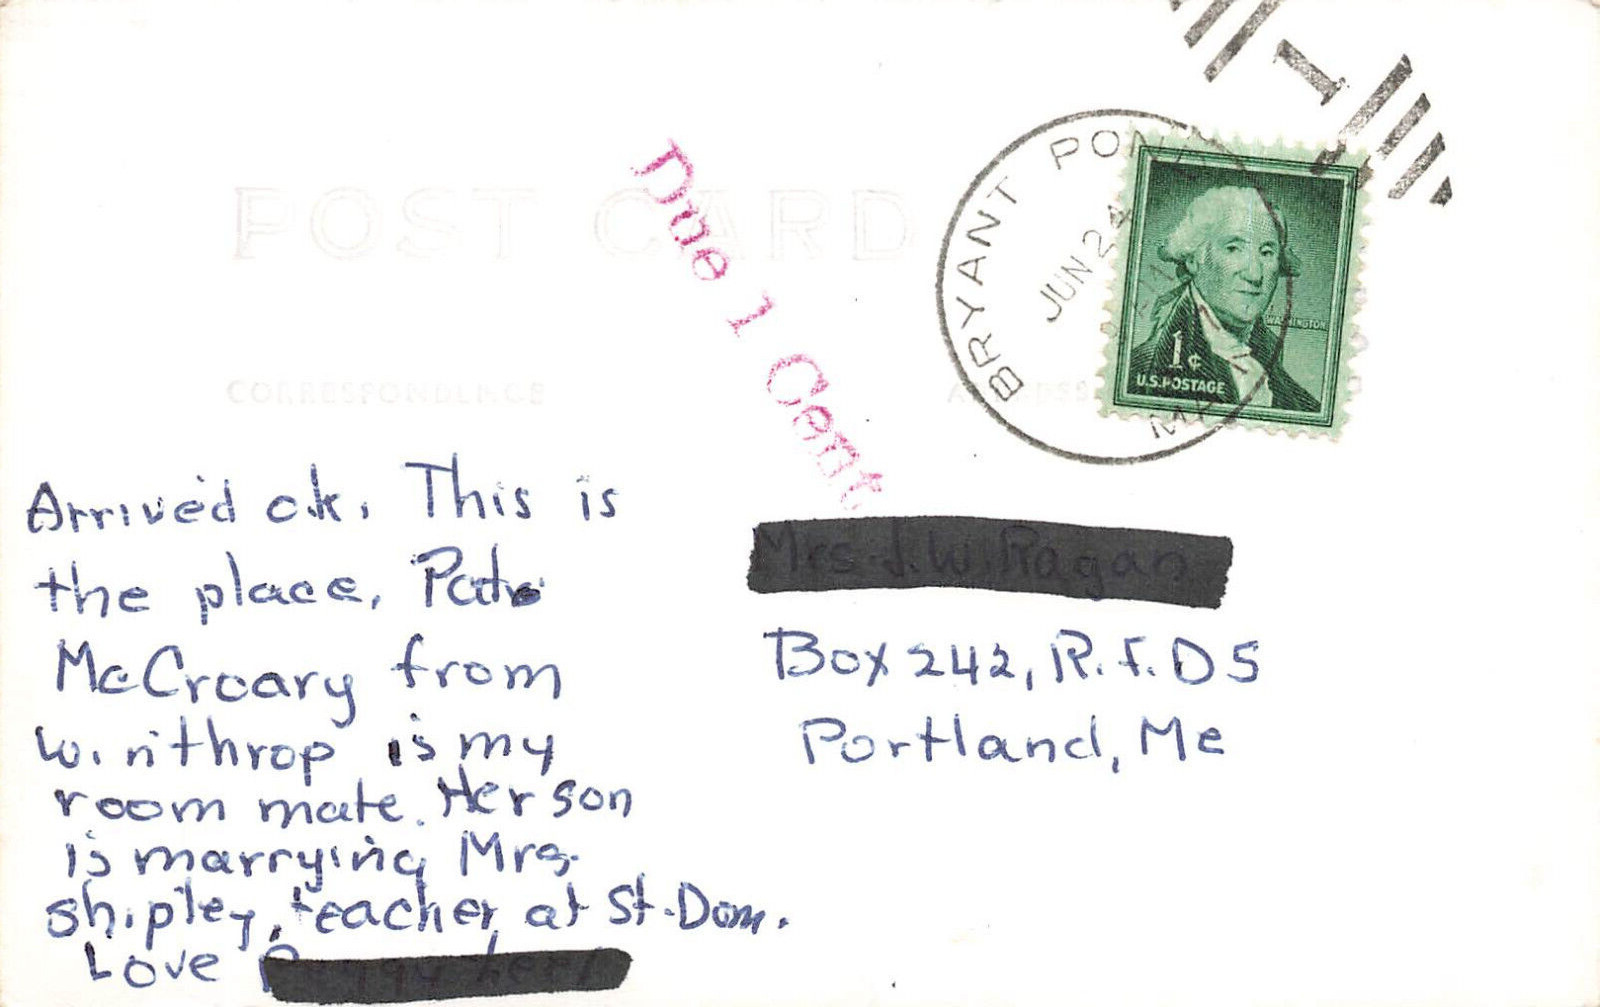 POST CARD
Due 1 Cent
BRYANT POND
JUN 24
MAINE
WASHINGTON
1¢
U.S. POSTAGE
CORRESPONDENCE
ADDRESS
Arrived ok. This is
the place, Pat
McCroary from
Winthrop is my
room mate. Her son
is marrying Mrs.
Shipley, teacher at St. Dom.
Love
Box 242, R.F.D 5
Portland, Me